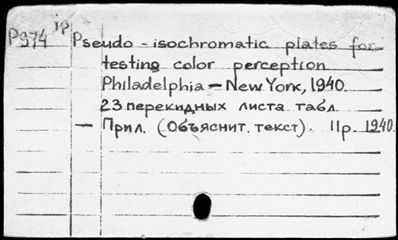 P374 ip
Pseudo - isochromatic plates for
testing color perception
Philadelphia - New York, 1940.
23 перекидных листа табл.
- Прил. (Объяснит. текст). 11p. 1940.